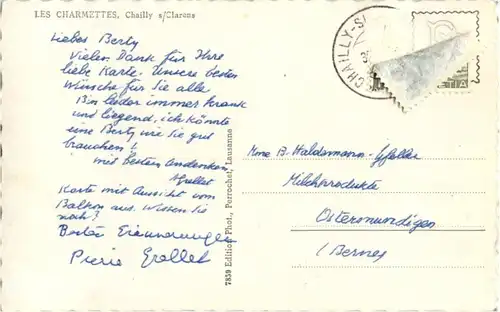 LES CHARMETTES, Chailly s/Clarens
Liebes Berty
Vielen Dank für Ihre
liebe Karte. Unsere besten
Wünsche für Sie alle
Bin leider immer krank
und liegend, ich könnte
eine Berty wie Sie gut
brauchen!
mit besten Andenken
Grellet
Karte mit Aussicht vom
Balkon aus. Wissen Sie
noch?
Beste Erinnerungen
Pierre Grellet
7859 Edition Phot. Perrochet, Lausanne
CHAILLY-S
TIA
Mme B. Haldemann-Gfeller
Milchprodukte
Ostermundigen
(Bernes